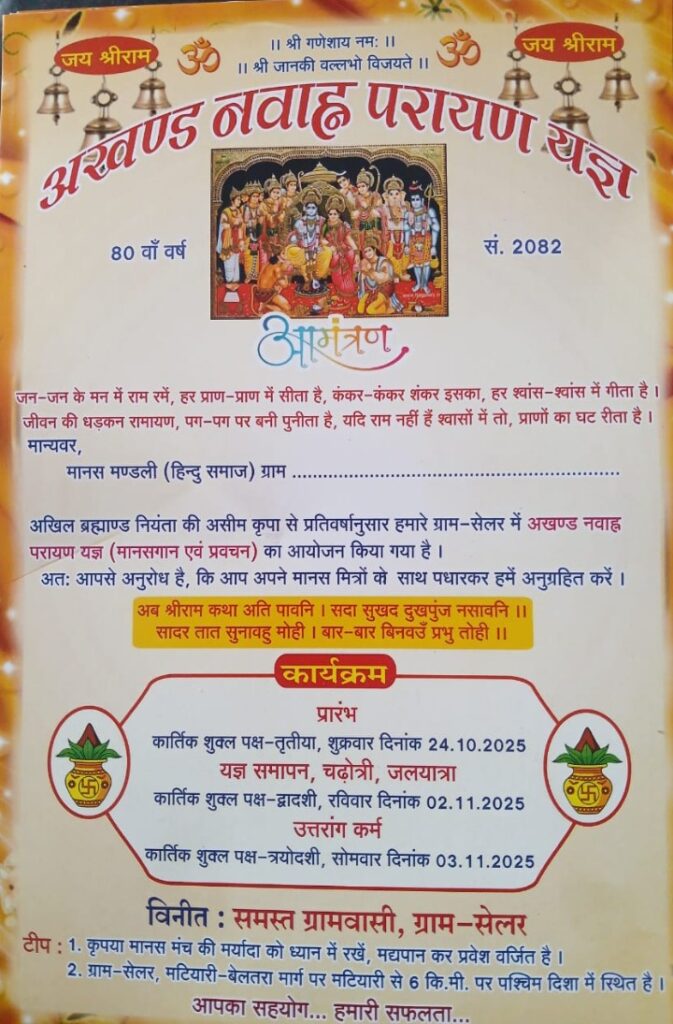 जय श्रीराम
ॐ
।। श्री गणेशाय नमः ।।
।। श्री जानकी वल्लभो विजयते ।।
ॐ
जय श्रीराम
अखण्ड नवाह्न परायण यज्ञ
80 वाँ वर्ष
सं. 2082
आमंत्रण
जन-जन के मन में राम रमें, हर प्राण-प्राण में सीता है, कंकर-कंकर शंकर इसका, हर श्वांस-श्वांस में गीता है ।
जीवन की धड़कन रामायण, पग-पग पर बनी पुनीता है, यदि राम नहीं हैं श्वासों में तो, प्राणों का घट रीता है ।
मान्यवर,
मानस मण्डली (हिन्दु समाज) ग्राम ..........................................................
अखिल ब्रह्माण्ड नियंता की असीम कृपा से प्रतिवर्षानुसार हमारे ग्राम-सेलर में अखण्ड नवाह्न
परायण यज्ञ (मानसगान एवं प्रवचन) का आयोजन किया गया है ।
अतः आपसे अनुरोध है, कि आप अपने मानस मित्रों के साथ पधारकर हमें अनुग्रहित करें ।
अब श्रीराम कथा अति पावनि । सदा सुखद दुखपुंज नसावनि ।।
सादर तात सुनावहु मोही । बार-बार बिनवउँ प्रभु तोही ।।
कार्यक्रम
प्रारंभ
कार्तिक शुक्ल पक्ष-तृतीया, शुक्रवार दिनांक 24.10.2025
यज्ञ समापन, चढ़ोत्री, जलयात्रा
कार्तिक शुक्ल पक्ष-द्वादशी, रविवार दिनांक 02.11.2025
उत्तरांग कर्म
कार्तिक शुक्ल पक्ष-त्रयोदशी, सोमवार दिनांक 03.11.2025
विनीत : समस्त ग्रामवासी, ग्राम-सेलर
टीप : 1. कृपया मानस मंच की मर्यादा को ध्यान में रखें, मद्यपान कर प्रवेश वर्जित है ।
2. ग्राम-सेलर, मटियारी-बेलतरा मार्ग पर मटियारी से 6 कि.मी. पर पश्चिम दिशा में स्थित है ।
आपका सहयोग... हमारी सफलता...